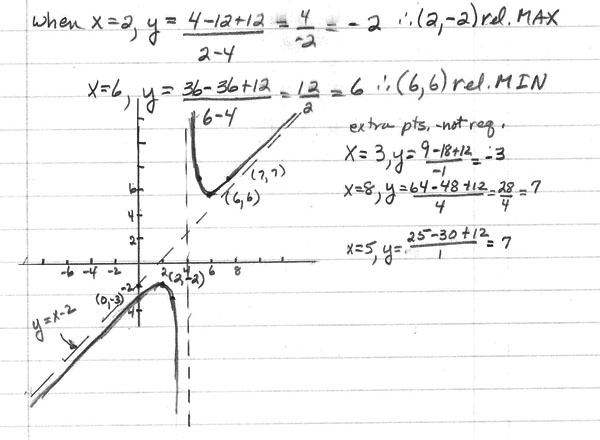 when x=2, y = (4-12+12)/(2-4) = 4/-2 = -2 ∴(2,-2) rel. MAX
x=6, y = (36-36+12)/(6-4) = 12/2 = 6 ∴(6,6) rel. MIN
extra pts. -not req.
x=3, y= (9-18+12)/-1 = -3
x=8, y= (64-48+12)/4 = 28/4 = 7
x=5, y= (25-30+12)/1 = 7
(7,7)
(6,6)
6
4
2
-6 -4 -2 2 4 6 8
(2,-2)
-2
(0,-3)
4
y=x-2